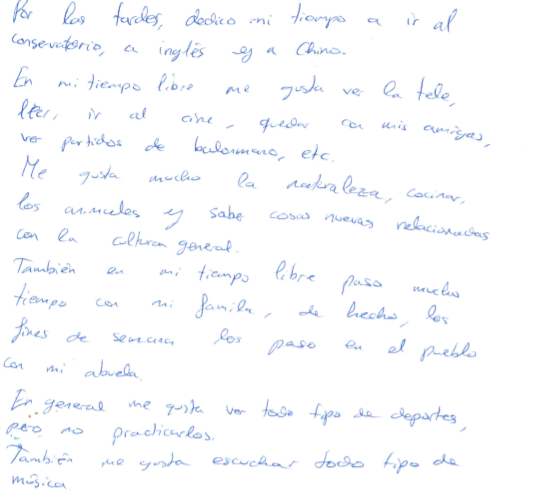 Por las tardes, dedico mi tiempo a ir al
conservatorio, a inglés y a Chino.
En mi tiempo libre me gusta ver la tele,
leer, ir al cine, quedar con mis amigas,
ver partidos de balonmano, etc.
Me gusta mucho la naturaleza, cocinar,
los animales y sabe cosas nuevas relacionadas
con la cultura general.
También en mi tiempo libre paso mucho
tiempo con mi familia, de hecho, los
fines de semana los paso en el pueblo
con mi abuela.
En general me gusta ver todo tipo de deportes,
pero no practicarlos.
También me gusta escuchar todo tipo de
música